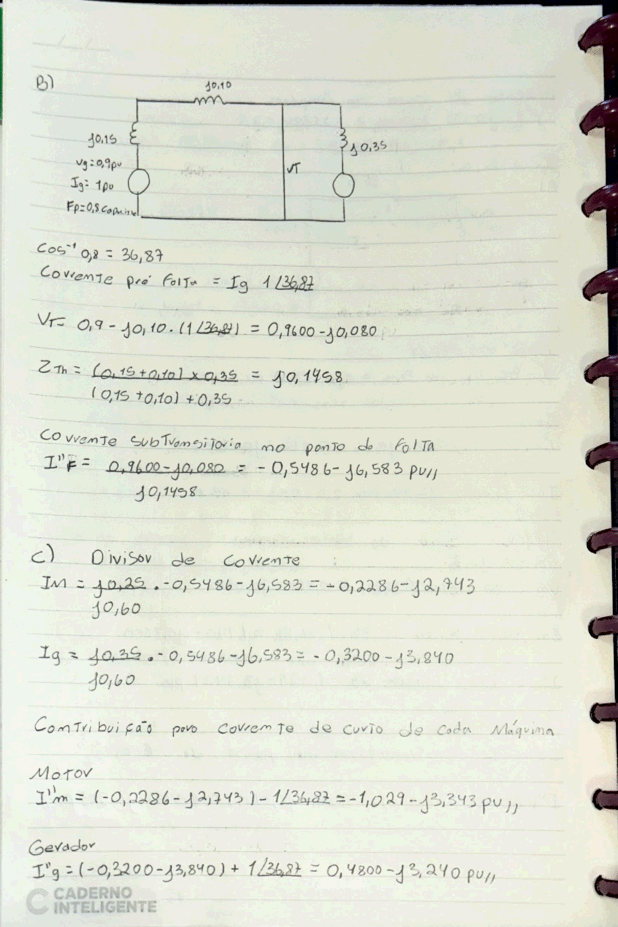 B)
j0,10
j0,15
j0,35
Vg=0,9pu
VT
Ig= 1pu
Fp=0,8 Capacitivo
Cos⁻¹ 0,8 = 36,87
Corrente pré Falta = Ig 1∠36,87
VT= 0,9 - j0,10 . (1∠36,87) = 0,9600-j0,080
ZTh = (0,15+0,10) x 0,35 = j0,1458
(0,15+0,10) + 0,35
Corrente subTransitoria no ponto de Falta
I"F = 0,9600-j0,080 = -0,5486-j6,583 pu//
j0,1458
C) Divisor de Corrente :
Im = j0,25 . -0,5486-j6,583 = -0,2286-j2,743
j0,60
Ig = j0,35 . -0,5486-j6,583 = -0,3200-j3,840
j0,60
Contribuição para corrente de curto de cada Máquina
Motor
I"m = (-0,2286-j2,743) - 1∠36,87 = -1,029-j3,343 pu//
Gerador
I"g = (-0,3200-j3,840) + 1∠36,87 = 0,4800-j3,240 pu//
CADERNO
INTELIGENTE